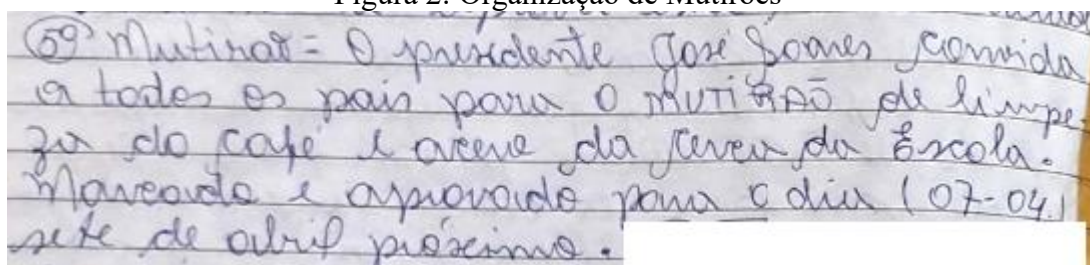 Figura 2: Organização de Mutirões
5º) Mutirão = O presidente José Soares convida
a todos os pais para o MUTIRÃO de limpe-
za do café e aceve da cerca da Escola.
Marcado e aprovado para o dia (07-04)
sete de abril próximo.